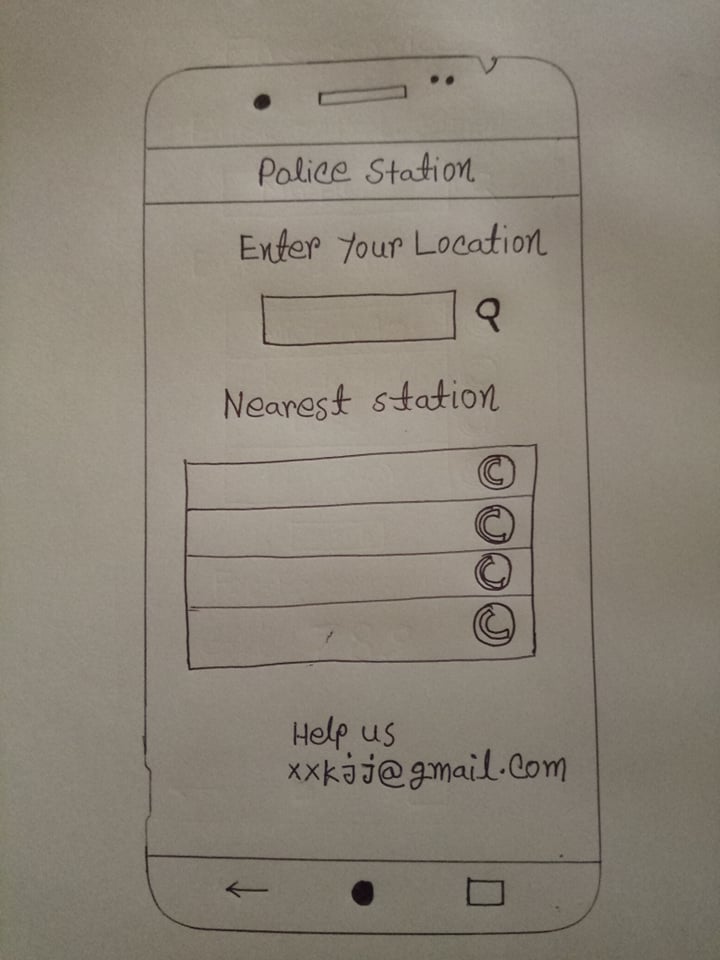 Police Station
Enter Your Location
Nearest station
Help us
xxkjj@gmail.com